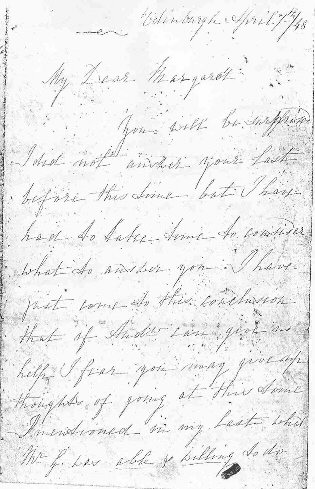 Edinburgh April 7th/48
My Dear Margaret
You will be surprised
I did not answer your last
before this time but I have
had to take time to consider
what to answer you. I have
just come to this conclusion
that if can give no
help I fear you may give up
thoughts of going at this time
I mentioned in my last what
Mr G. was able & willing to do